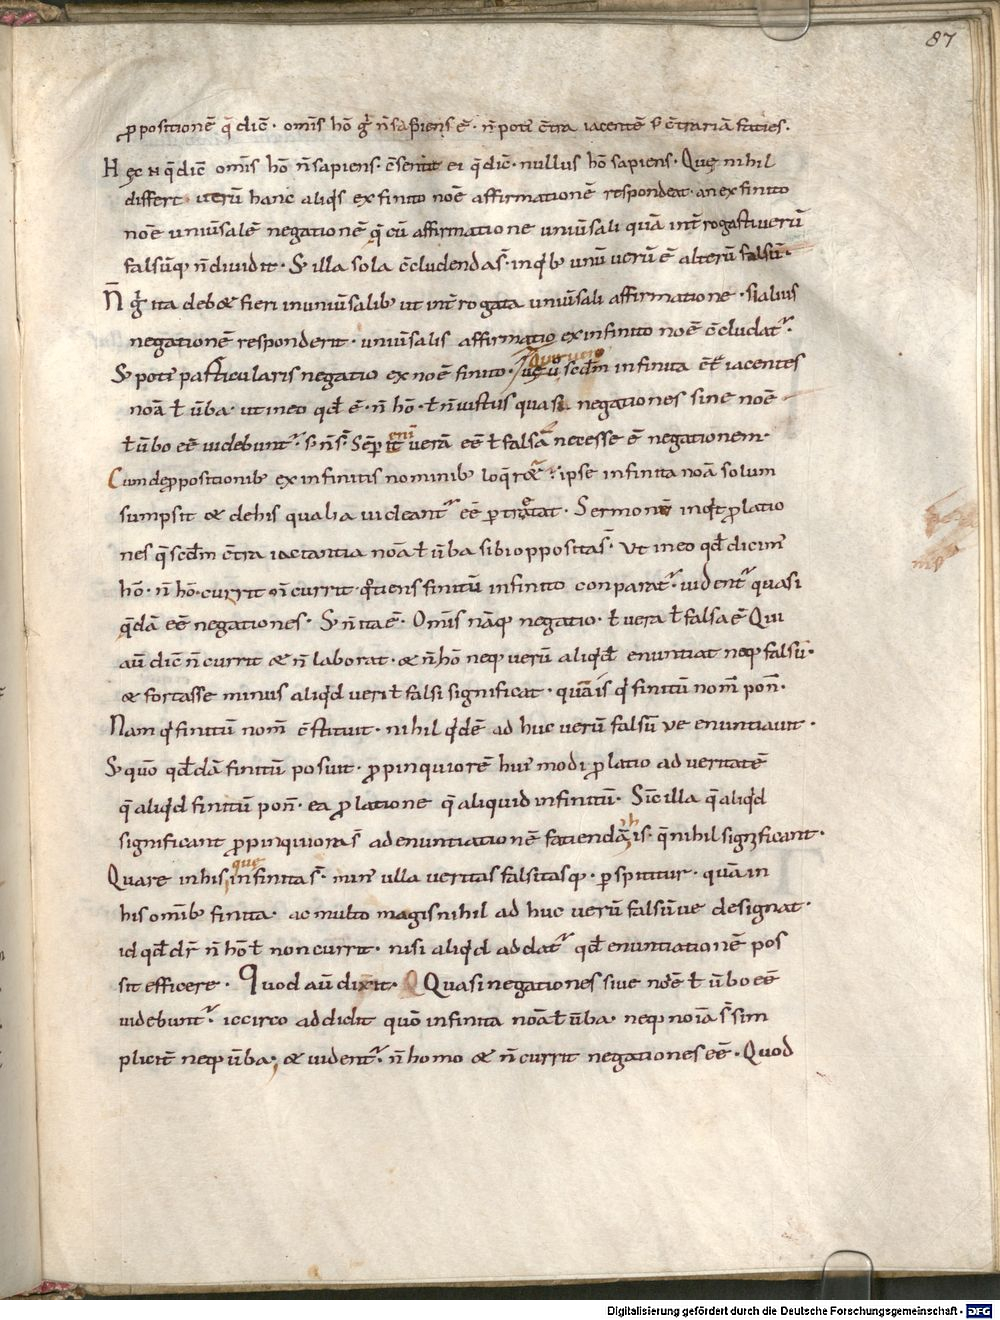 87
ppositionē q̄ dic̄ · omīs hō gͥ n̄ sapiens ē · n̄ poteͬ c̄tra iacentē s; c̄trariā faties ·
Hęc n̄ q̄ dic̄ omīs hō n̄ sapiens · c̄sentit ei q̄ dic̄ · nullus hō sapiens · Quę nihil
differt · uerū hanc aliqͥs ex finito noē affirmationē respondeat · an ex finito
noē uniūsalē negationē q̄ cū affirmatione uniūsali quā int̄rogasti uerū
falsūq; n̄ diuidit · S; illa sola c̄cludenda s̄ · in qͥb; unū uerū ē alterū falsū ·
N̄ gͥ ita deb& fieri in uniūsalib; ut int̄rogata uniūsali affirmatione · si alius
negationē responderit · uniūsalis affirmatio ex infinito noē c̄cludatͬ ·
S; poteͬ particularis negatio ex noē finito · ue ū scd̄m infinita c̄t̄ iacentes
noā ł ūba · ut in eo qd̄ ē · n̄ hō · ł n̄ iustus quasi negationes sine noē
ł ūbo eē uidebuntͬ · s; n̄ s̄ · Sēp eni uerā eē ł falsā necesse ē negationem ·
Cum de ppositionib; ex infinitis nominib; loq̄r&ͬ · ipse infinita noā solum
sumpsit & de his qualia uideantͬ eē ptractat · Sermonē inqͥt platio
nes q̄ scd̄m c̄tra iactantia noā ł ūba sibi oppositas · Ut in eo qd̄ dicimͥ
hō · n̄ hō · currit · n̄ currit · qͦtiens finitū infinito conparatͬ · uidentͬ quasi
q̄dā eē negationes · S; n̄ ita ē · Omīs nāq; negatio · ł uera ł falsa ē Qui
aū dic̄ n̄ currit & n̄ laborat · & n̄ hō neq; uerū aliqͥd enuntiat neq; falsū ·
& fortasse minus aliqͥd ueri ł falsi significat · quā is qͥ finitū nom̄ pon̄ ·
Nam qͥ finitū nom̄ c̄stituit · nihil qͥdē ad huc uerū falsū ue enuntiauit ·
S; quō qd̄dā finitū posuit · ppinquiorē huiͥ modi platio ad ueritatē
q̄ aliqͥd finitū pon̄ · ea platione q̄ aliquid infinitū · Sic̄ illa q̄ aliqͥd
significant ppinquiora s̄ ad enuntiationē fatiendā his · q̄ nihil significant ·
Quare in his quę infinita s̄ · minͥ ulla ueritas falsitasq; pspicitur · quā in
his omīb; finita · ac multo magis nihil ad huc uerū falsūue designat ·
id qd̄ dr̄ n̄ hō ł non currit · nisi aliqͥd addatͬ qd̄ enuntiationē pos
sit efficere · Quod aū dixit · Quasi negationes siue noē ł ūbo eē
uidebuntͬ · iccirco addidit quō infinita noā ł ūba · neq; noīa s̄ sim
plicit̄ neq; ūba · & uidentͬ · n̄ homo & n̄ currit negationes eē · Quod
Digitalisierung gefördert durch die Deutsche Forschungsgemeinschaft - DFG